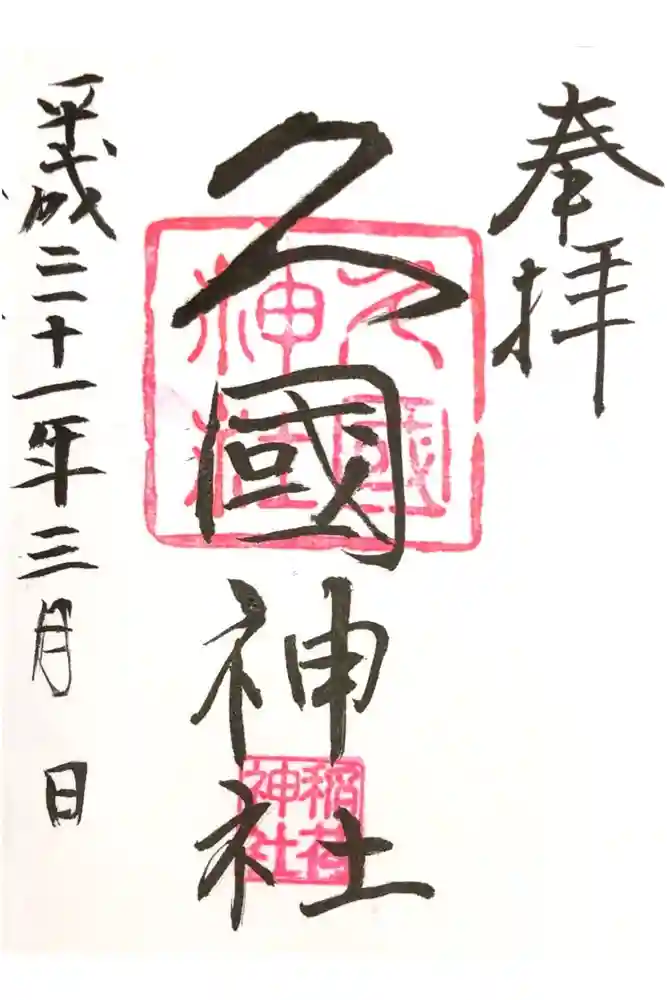 奉拝
久國神社
久國
神社
稲荷
神社
平成三十一年三月 日